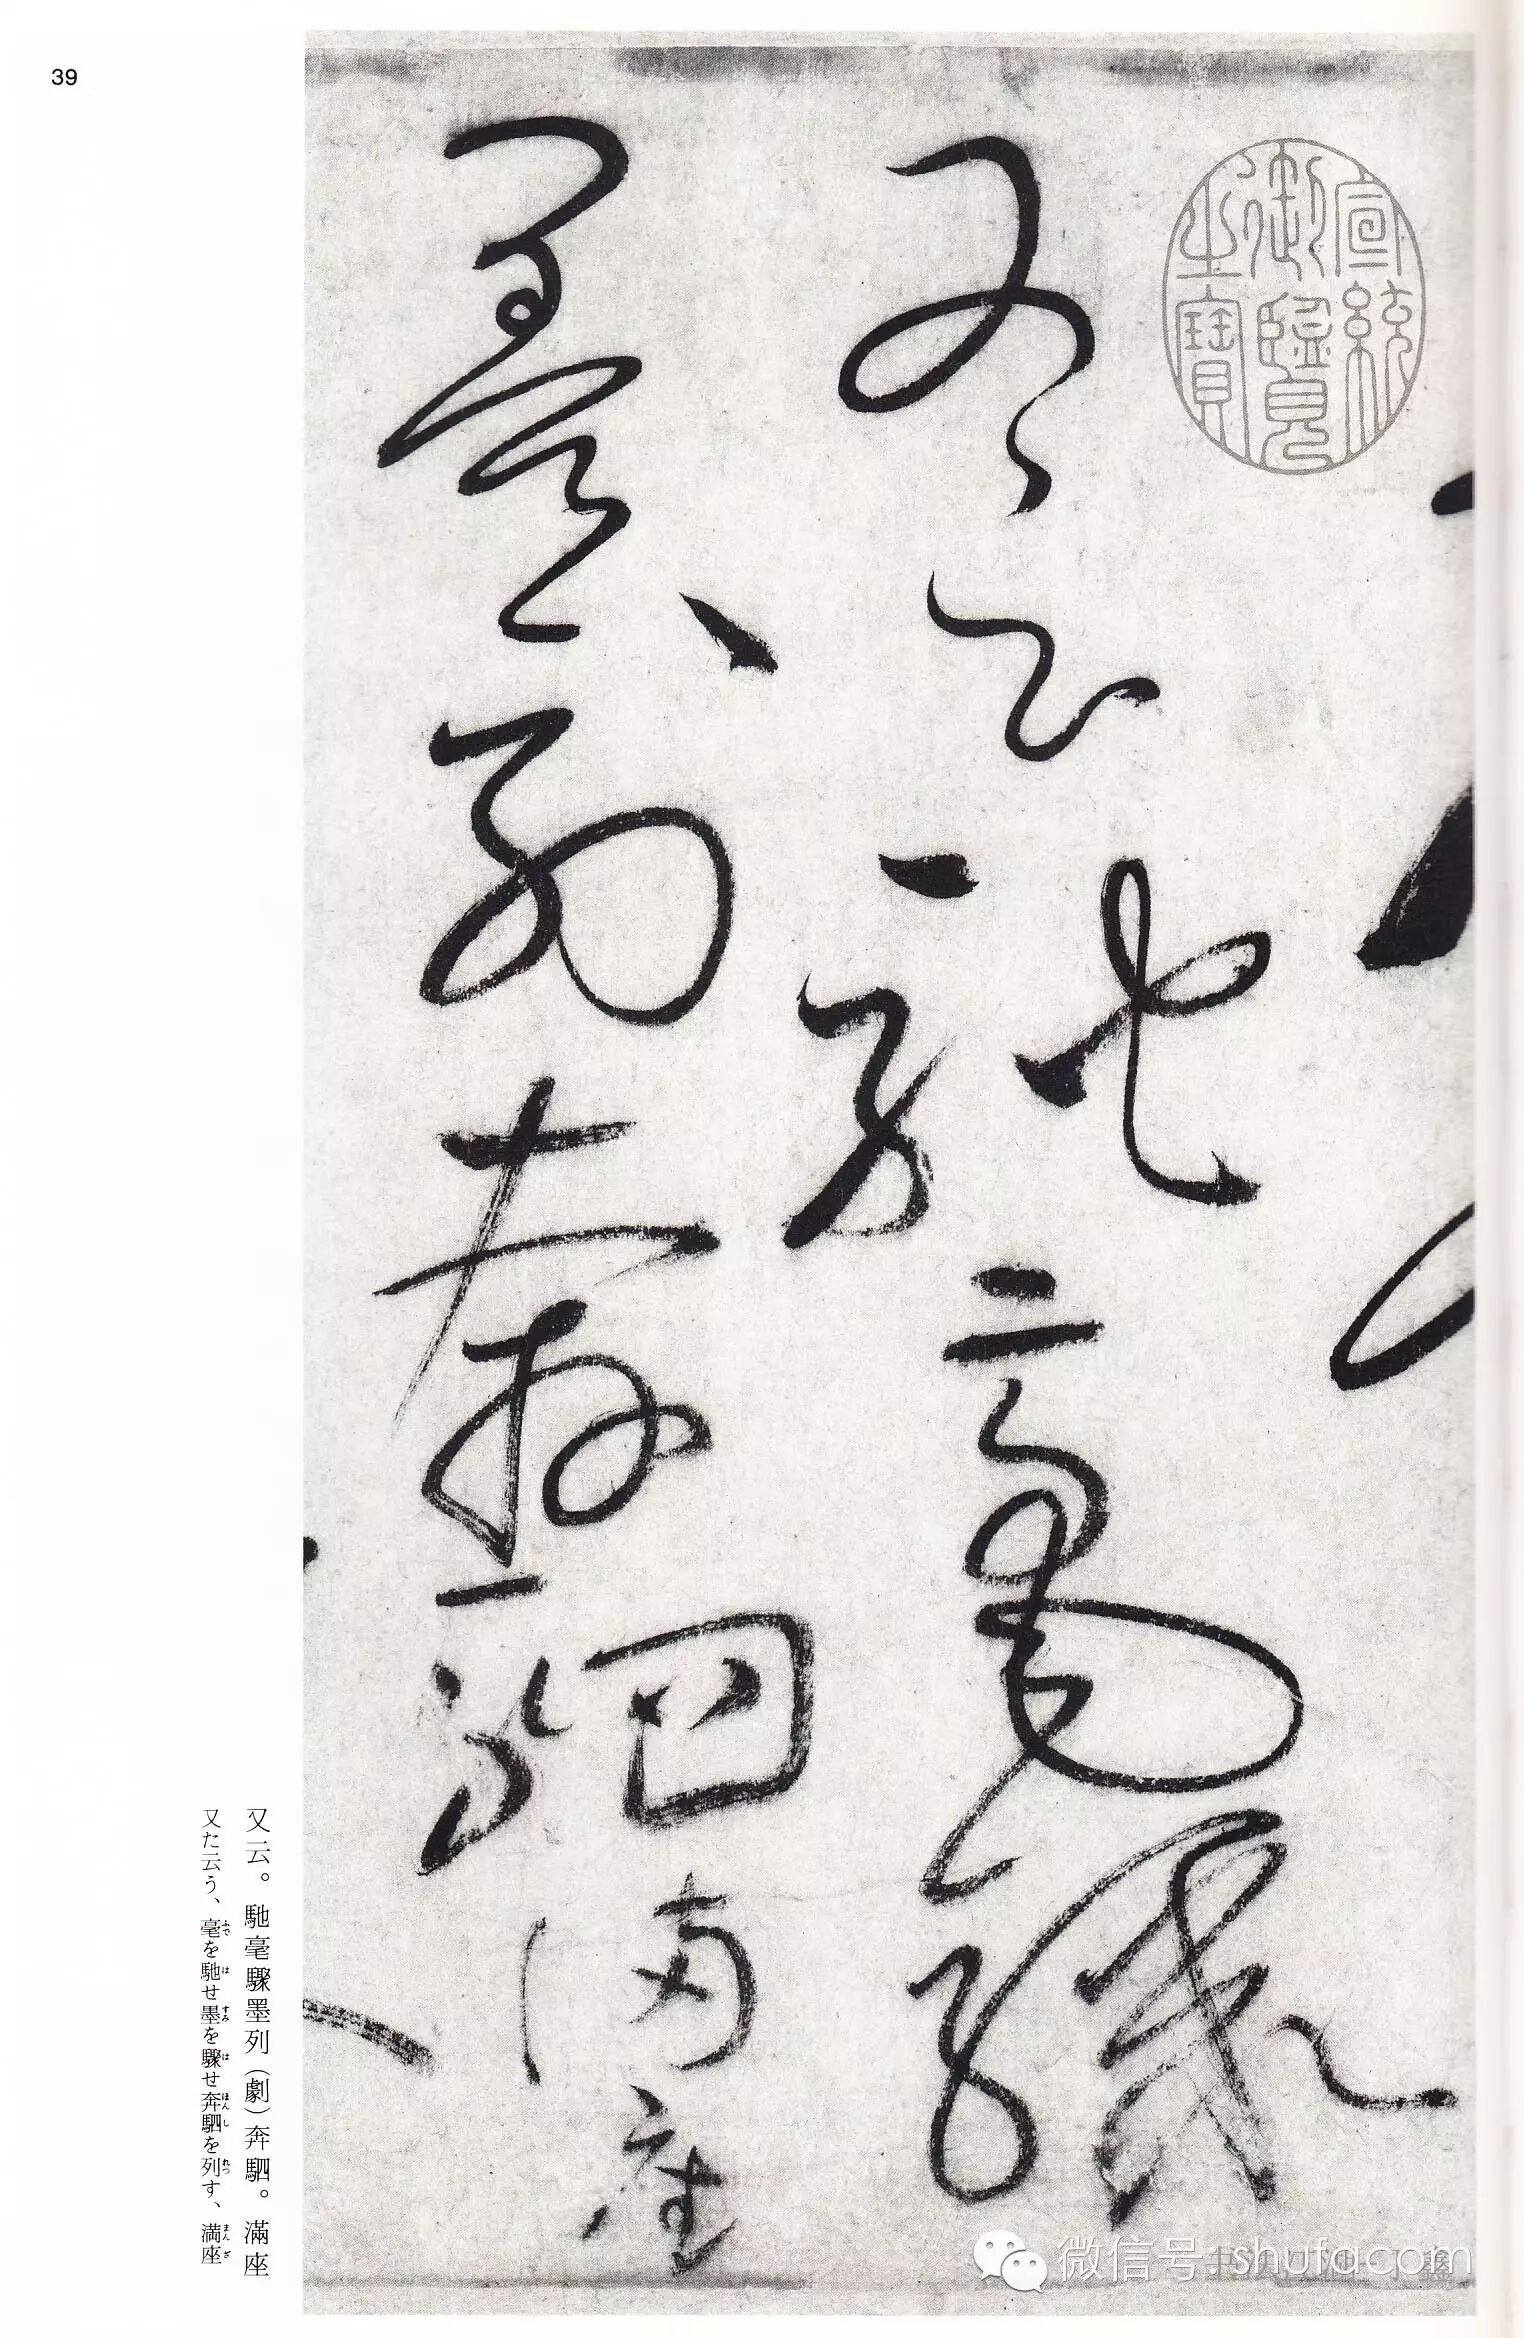 39
宣統
御覽
之寶
又云馳毫驟
墨列奔駟滿座
又云。馳毫驟墨列（劇）奔駟。滿座
又た云う、毫を馳せ墨を驟せ奔駟を列す、満座
微信号: shufa.com